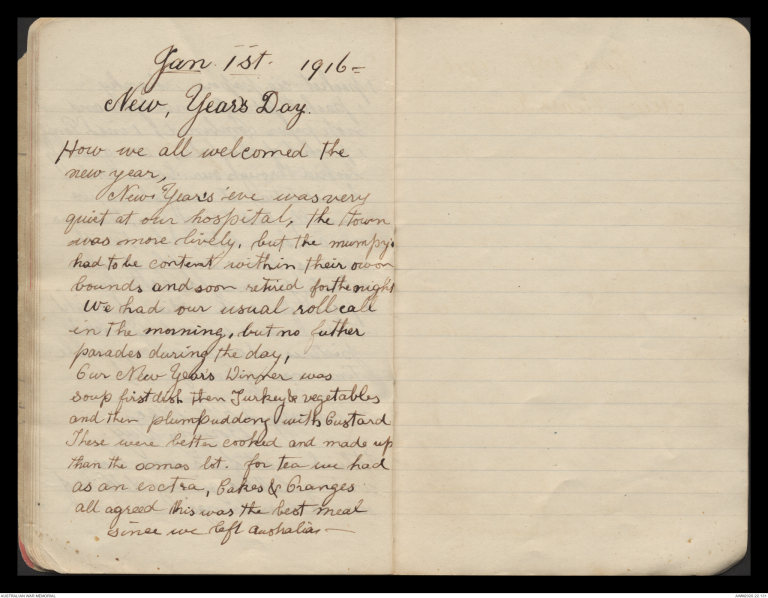 Jan 1st. 1916=
New, Year's Day.
How we all welcomed the
new year,
New Year's 'eve was very
quiet at our hospital, the town
was more lively, but the mumpy's
had to be content within their owon
bounds and soon retired for the night
We had our usual roll call
in the morning, but no futher
parades during the day,
Our New Years Dinner was
soup first dish then Turkey & vegetables
and then plumpuddeng with Custard
These were better cooked and made up
than the oomas lot. for tea we had
as an exctra, Cakes & Oranges
all agreed this was the best meal
since we left Australia —
AUSTRALIAN WAR MEMORIAL